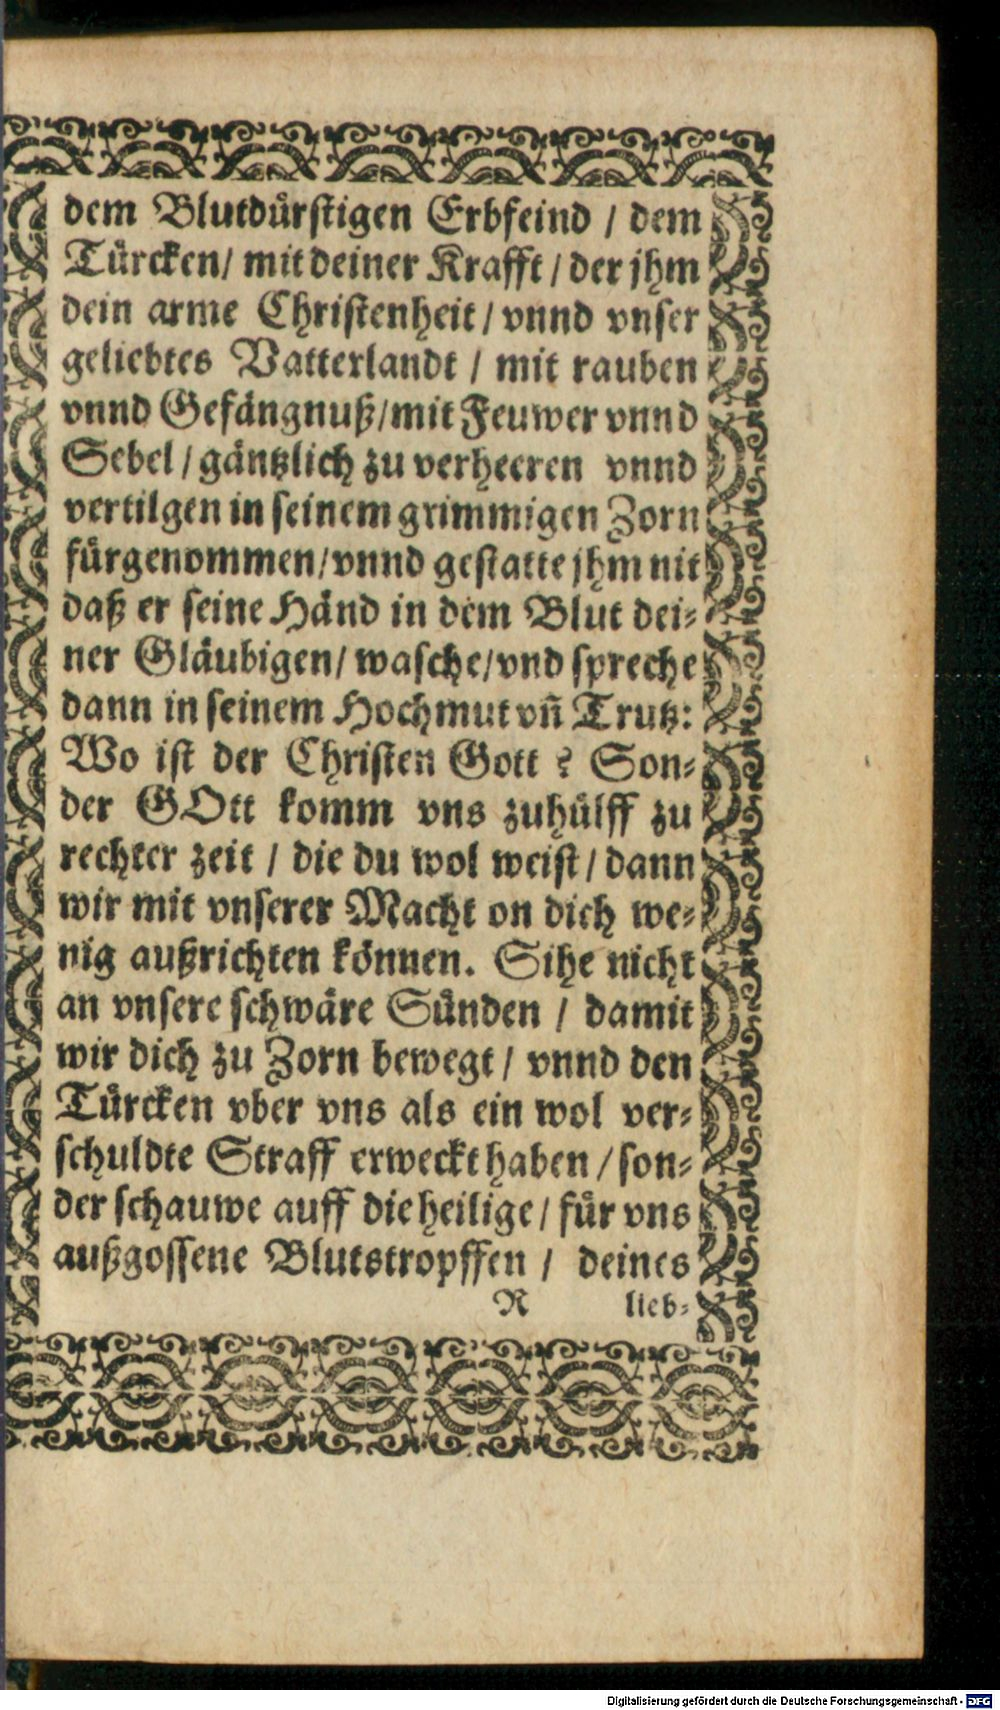 dem Blutdürstigen Erbfeind / dem
Türcken/ mit deiner Krafft / der jhm
dein arme Christenheit / vnnd vnser
geliebtes Vatterlandt / mit rauben
vnnd Gefängnuß/mit Feuwer vnnd
Sebel / gäntzlich zu verheeren vnnd
vertilgen in seinem grimmigen Zorn
fürgenommen/vnnd gestatte jhm nit
daß er seine Händ in dem Blut dei⸗
ner Gläubigen/ wasche/vnd spreche
dann in seinem Hochmut vñ Trutz:
Wo ist der Christen Gott? Son⸗
der GOtt komm vns zuhülff zu
rechter zeit / die du wol weist / dann
wir mit vnserer Macht on dich we⸗
nig außrichten können. Sihe nicht
an vnsere schwäre Sünden / damit
wir dich zu Zorn bewegt / vnnd den
Türcken vber vns als ein wol ver⸗
schuldte Straff erweckt haben / son⸗
der schauwe auff die heilige / für vns
außgossene Blutstropffen / deines
R lieb⸗
Digitalisierung gefördert durch die Deutsche Forschungsgemeinschaft - DFG